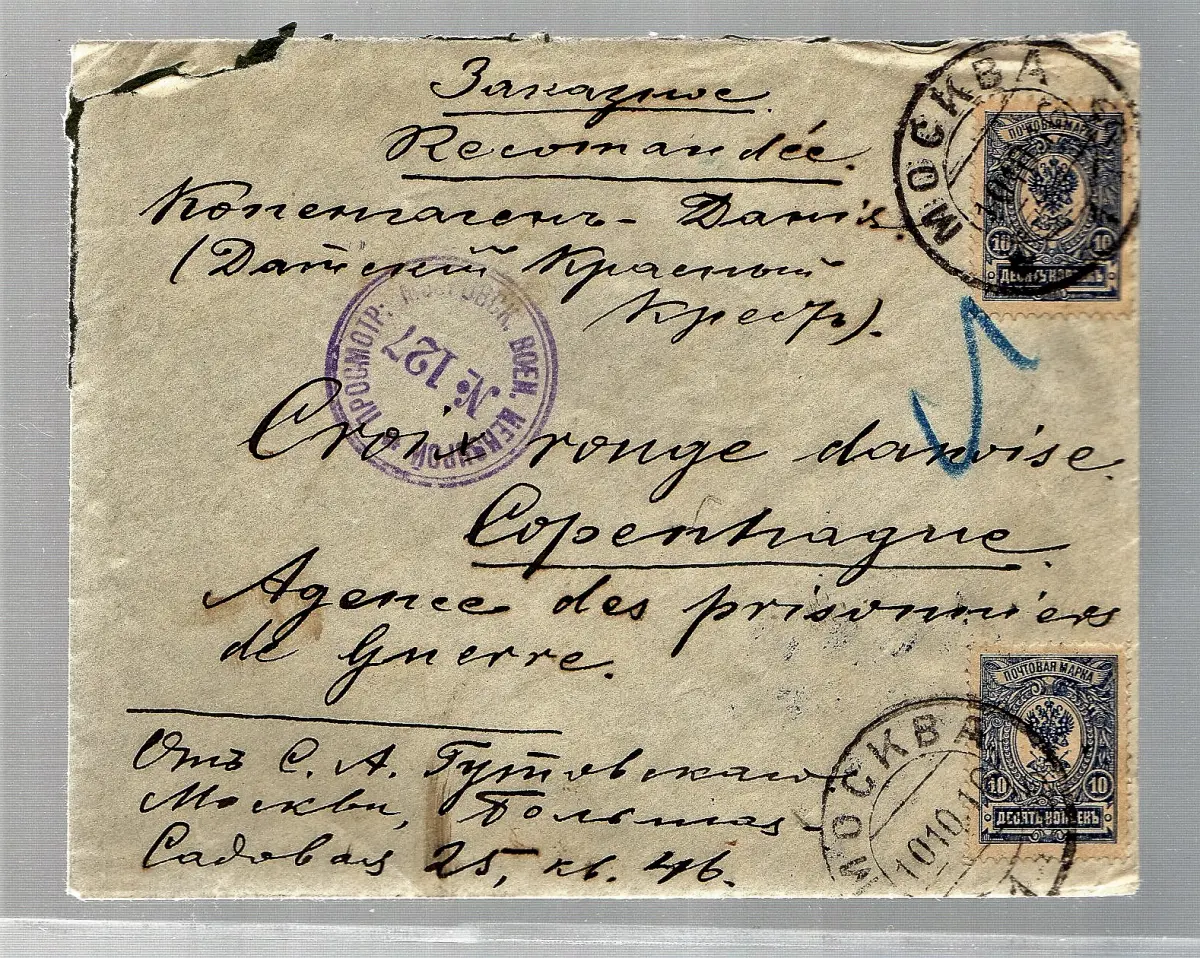 Заказное.
Recomandée.
Копенгагенъ - Данія.
(Датскій Красный
Крестъ).
Croix rouge danoise.
Copenhague.
Agence des prisonniers
de Guerre.
Отъ С. А. Гутовскаго
Москва, Большая
Садовая 25, кв. 46.
МОСКВА
ПОЧТОВАЯ МАРКА
10 10
ДЕСЯТЬ КОПѢЕКЪ
ПРОСМОТР: МОСКОВСК. ВОЕН. ЦЕНЗУРОЙ
№ 127
МОСКВА
1010.1
ПОЧТОВАЯ МАРКА
10 10
ДЕСЯТЬ КОПѢЕКЪ